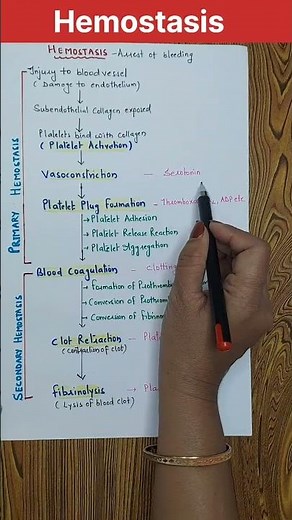 Hemostasis
HEMOSTASIS - Arrest of bleeding
Injury to blood vessel
(Damage to endothelium)
Subendothelial Collagen exposed
Platelets bind with Collagen
(Platelet Activation)
Vasoconstriction - Serotonin
Platelet Plug Formation - Thromboxane A2, ADP etc
→ Platelet Adhesion
→ Platelet Release Reaction
→ Platelet Aggregation
PRIMARY HEMOSTASIS
Blood Coagulation - Clotting
→ Formation of Prothrom
→ Conversion of Prothrom
→ Conversion of Fibrin
Clot Retraction - Plate
(Contraction of clot)
fibrinolysis → Pla
(Lysis of blood clot)
SECONDARY HEMOSTASIS